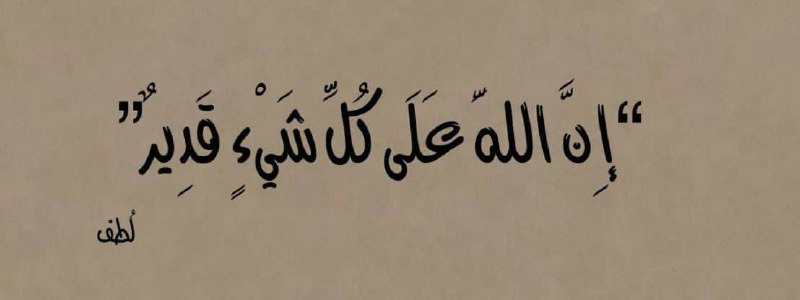 “إِنَّ اللهّ عَلَى كُلِّ شَيْءٍ قَدِيرٌ”
لُطف